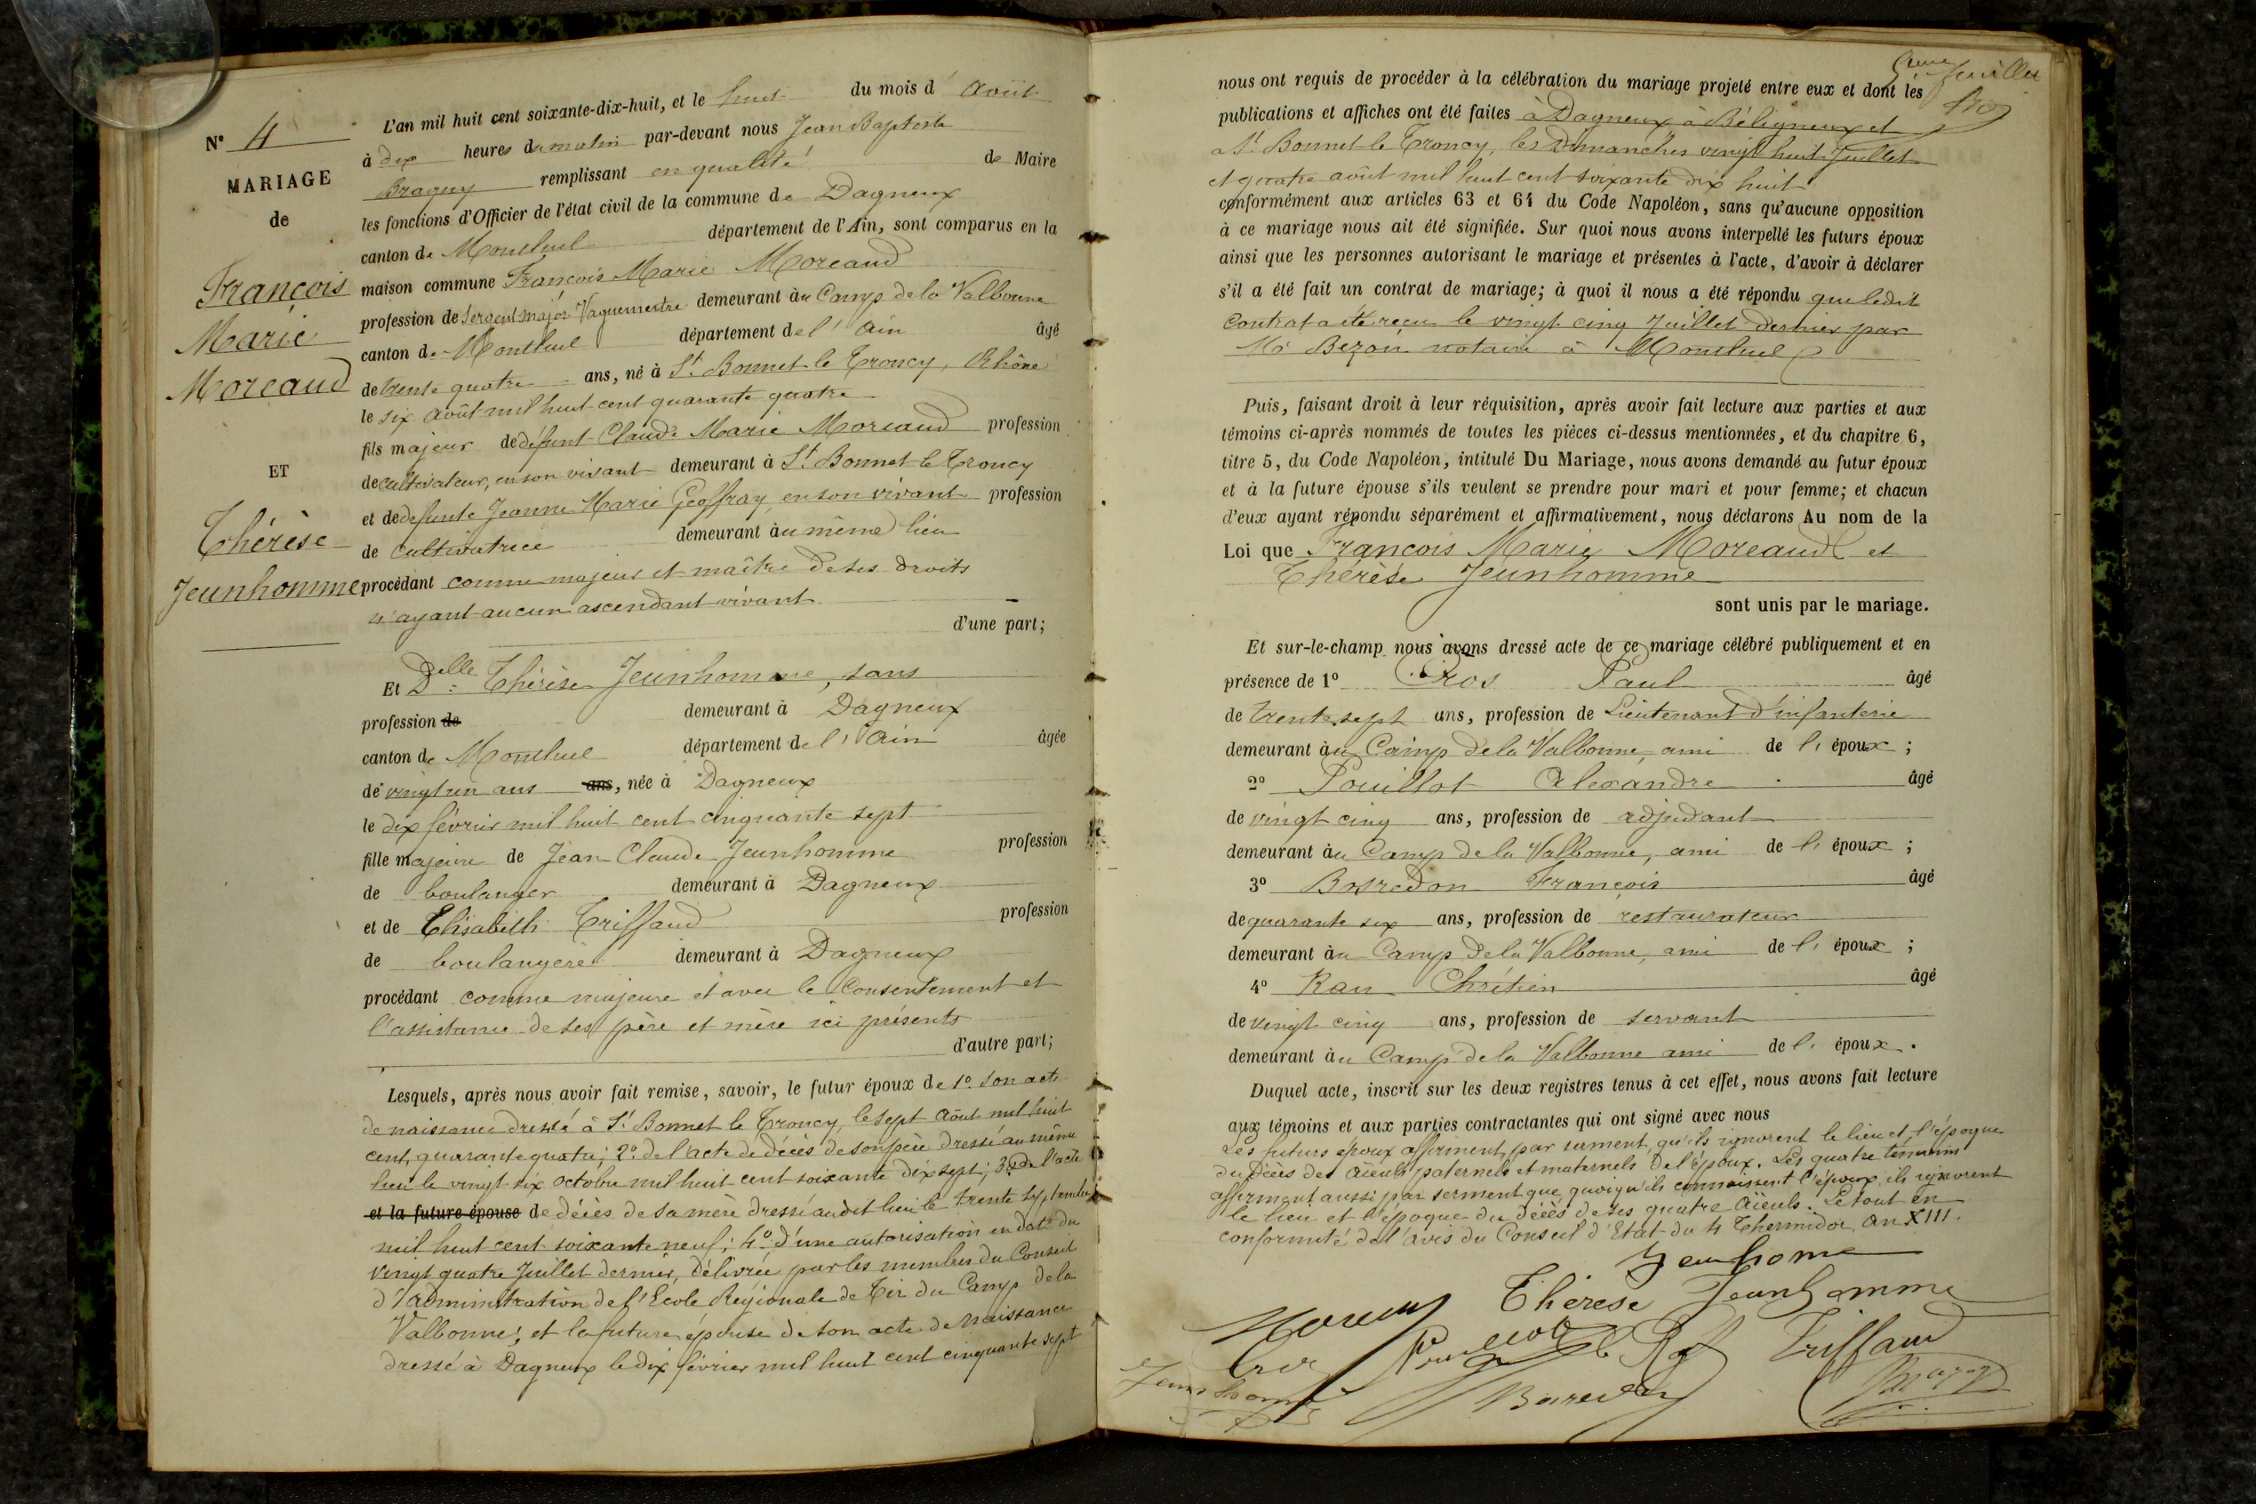 N° 4
MARIAGE
de
François
Marie
Moreaud
ET
Thérèse
Jeunhomme
L'an mil huit cent soixante-dix-huit, et le huit du mois d' Août
à dix heures du matin par-devant nous Jean Baptiste
Braguy remplissant en qualité de Maire
les fonctions d'Officier de l'état civil de la commune de Dagneux
canton de Montluel département de l'Ain, sont comparus en la
maison commune François Marie Moreaud
profession de Sergent major Vaguemestre demeurant au Camp de la Valbonne
canton de Montluel département de l' Ain âgé
de trente quatre ans, né à St Bonnet le Troncy, Rhône
le six août mil huit cent quarante quatre
fils majeur de défunt Claude Marie Moreaud profession
de cultivateur, en son vivant demeurant à St Bonnet le Troncy
et de défunte Jeanne Marie Geoffray, en son vivant profession
de cultivatrice demeurant au même lieu
procédant comme majeur et maître de ses droits
n'ayant aucun ascendant vivant
d'une part;
Et Delle Thérèse Jeunhomme, sans
profession de demeurant à Dagneux
canton de Montluel département de l' Ain âgée
de vingt un ans ans, née à Dagneux
le dix février mil huit cent cinquante sept
fille majeure de Jean Claude Jeunhomme profession
de boulanger demeurant à Dagneux
et de Elisabeth Triffaud profession
de boulangère demeurant à Dagneux
procédant comme majeure et avec le consentement et
l'assistance de ses père et mère ici présents
d'autre part;
Lesquels, après nous avoir fait remise, savoir, le futur époux de 1° son acte
de naissance dressé à St Bonnet le Troncy, le sept Août mil huit
cent quarante quatre; 2° de l'acte de décès de son père dressé au même
lieu le vingt six octobre mil huit cent soixante dix sept; 3° de l'acte
et la future épouse de décès de sa mère dressé audit lieu le trente Septembre
mil huit cent soixante neuf; 4° d'une autorisation en date du
vingt quatre Juillet dernier, délivrée par les membres du Conseil
d'administration de l'Ecole Régionale de Tir du Camp de la
Valbonne; et la future épouse de son acte de Naissance
dressé à Dagneux le dix février mil huit cent cinquante sept
5eme feuillet
nous ont requis de procéder à la célébration du mariage projeté entre eux et dont les
publications et affiches ont été faites à Dagneux à Béligneux et
a St Bonnet le Troncy, les Dimanches vingt huit Juillet
et quatre août mil huit cent soixante dix huit
conformément aux articles 63 et 64 du Code Napoléon, sans qu'aucune opposition
à ce mariage nous ait été signifiée. Sur quoi nous avons interpellé les futurs époux
ainsi que les personnes autorisant le mariage et présentes à l'acte, d'avoir à déclarer
s'il a été fait un contrat de mariage; à quoi il nous a été répondu que ledit
contrat a été reçu le vingt cinq Juillet dernier par
Me Bezon notaire à Montluel
Puis, faisant droit à leur réquisition, après avoir fait lecture aux parties et aux
témoins ci-après nommés de toutes les pièces ci-dessus mentionnées, et du chapitre 6,
titre 5, du Code Napoléon, intitulé Du Mariage, nous avons demandé au futur époux
et à la future épouse s'ils veulent se prendre pour mari et pour femme; et chacun
d'eux ayant répondu séparément et affirmativement, nous déclarons Au nom de la
Loi que François Marie Moreaud et
Thérèse Jeunhomme
sont unis par le mariage.
Et sur-le-champ nous avons dressé acte de ce mariage célébré publiquement et en
présence de 1° Cros Paul âgé
de trente sept ans, profession de Lieutenant d'infanterie
demeurant au Camp de la Valbonne, ami de l' époux;
2° Pouillot Alexandre âgé
de vingt cinq ans, profession de adjudant
demeurant au Camp de la Valbonne, ami de l' époux;
3° Bosredon François âgé
de quarante six ans, profession de restaurateur
demeurant au Camp de la Valbonne, ami de l' époux;
4° Rau Chrétien âgé
de vingt cinq ans, profession de servant
demeurant au Camp de la Valbonne ami de l' époux.
Duquel acte, inscrit sur les deux registres tenus à cet effet, nous avons fait lecture
aux témoins et aux parties contractantes qui ont signé avec nous
Les futurs époux affirment par serment, qu'ils ignorent le lieu et l'époque
du Décès des Aïeuls paternels et maternels de l'époux. Les quatre témoins
affirment aussi par serment que, quoiqu'ils connaissent l'époux, ils ignorent
le lieu et l'époque du décès de ses quatre Aïeuls. Le tout en
conformité de l'avis du Conseil d'Etat du 4 Thermidor an XIII.
Jeunhome
Thérèse Jeunhomme
Triffaud